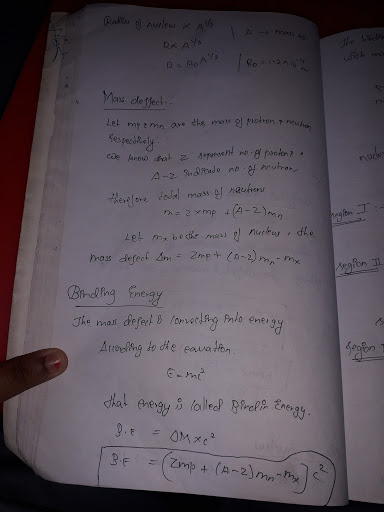 Radius of nucleus ∝ A^1/3 | A → mass no
R ∝ A^1/3
R = R0 A^1/3 | R0 = 1.2 x
Mass deffect:-
Let mp & mn are the mass of protron & neutron
respectively.
we know that Z represent no. of proton &
A-Z indicate no. of neutron
therefore total mass of
m = Z x mp + (A-Z) mn
Let mx be the mass of nucleus, the
mass defect Δm = Zmp + (A-Z) mn - mx
Binding Energy
The mass defect is convecting into energy
According to the equation.
E = mc²
that energy is called Bindin Energy.
B.E = ΔM x c²
B.E = (Zmp + (A-Z) mn - mx) c²
The
with
nucle
region I :-
region II
region